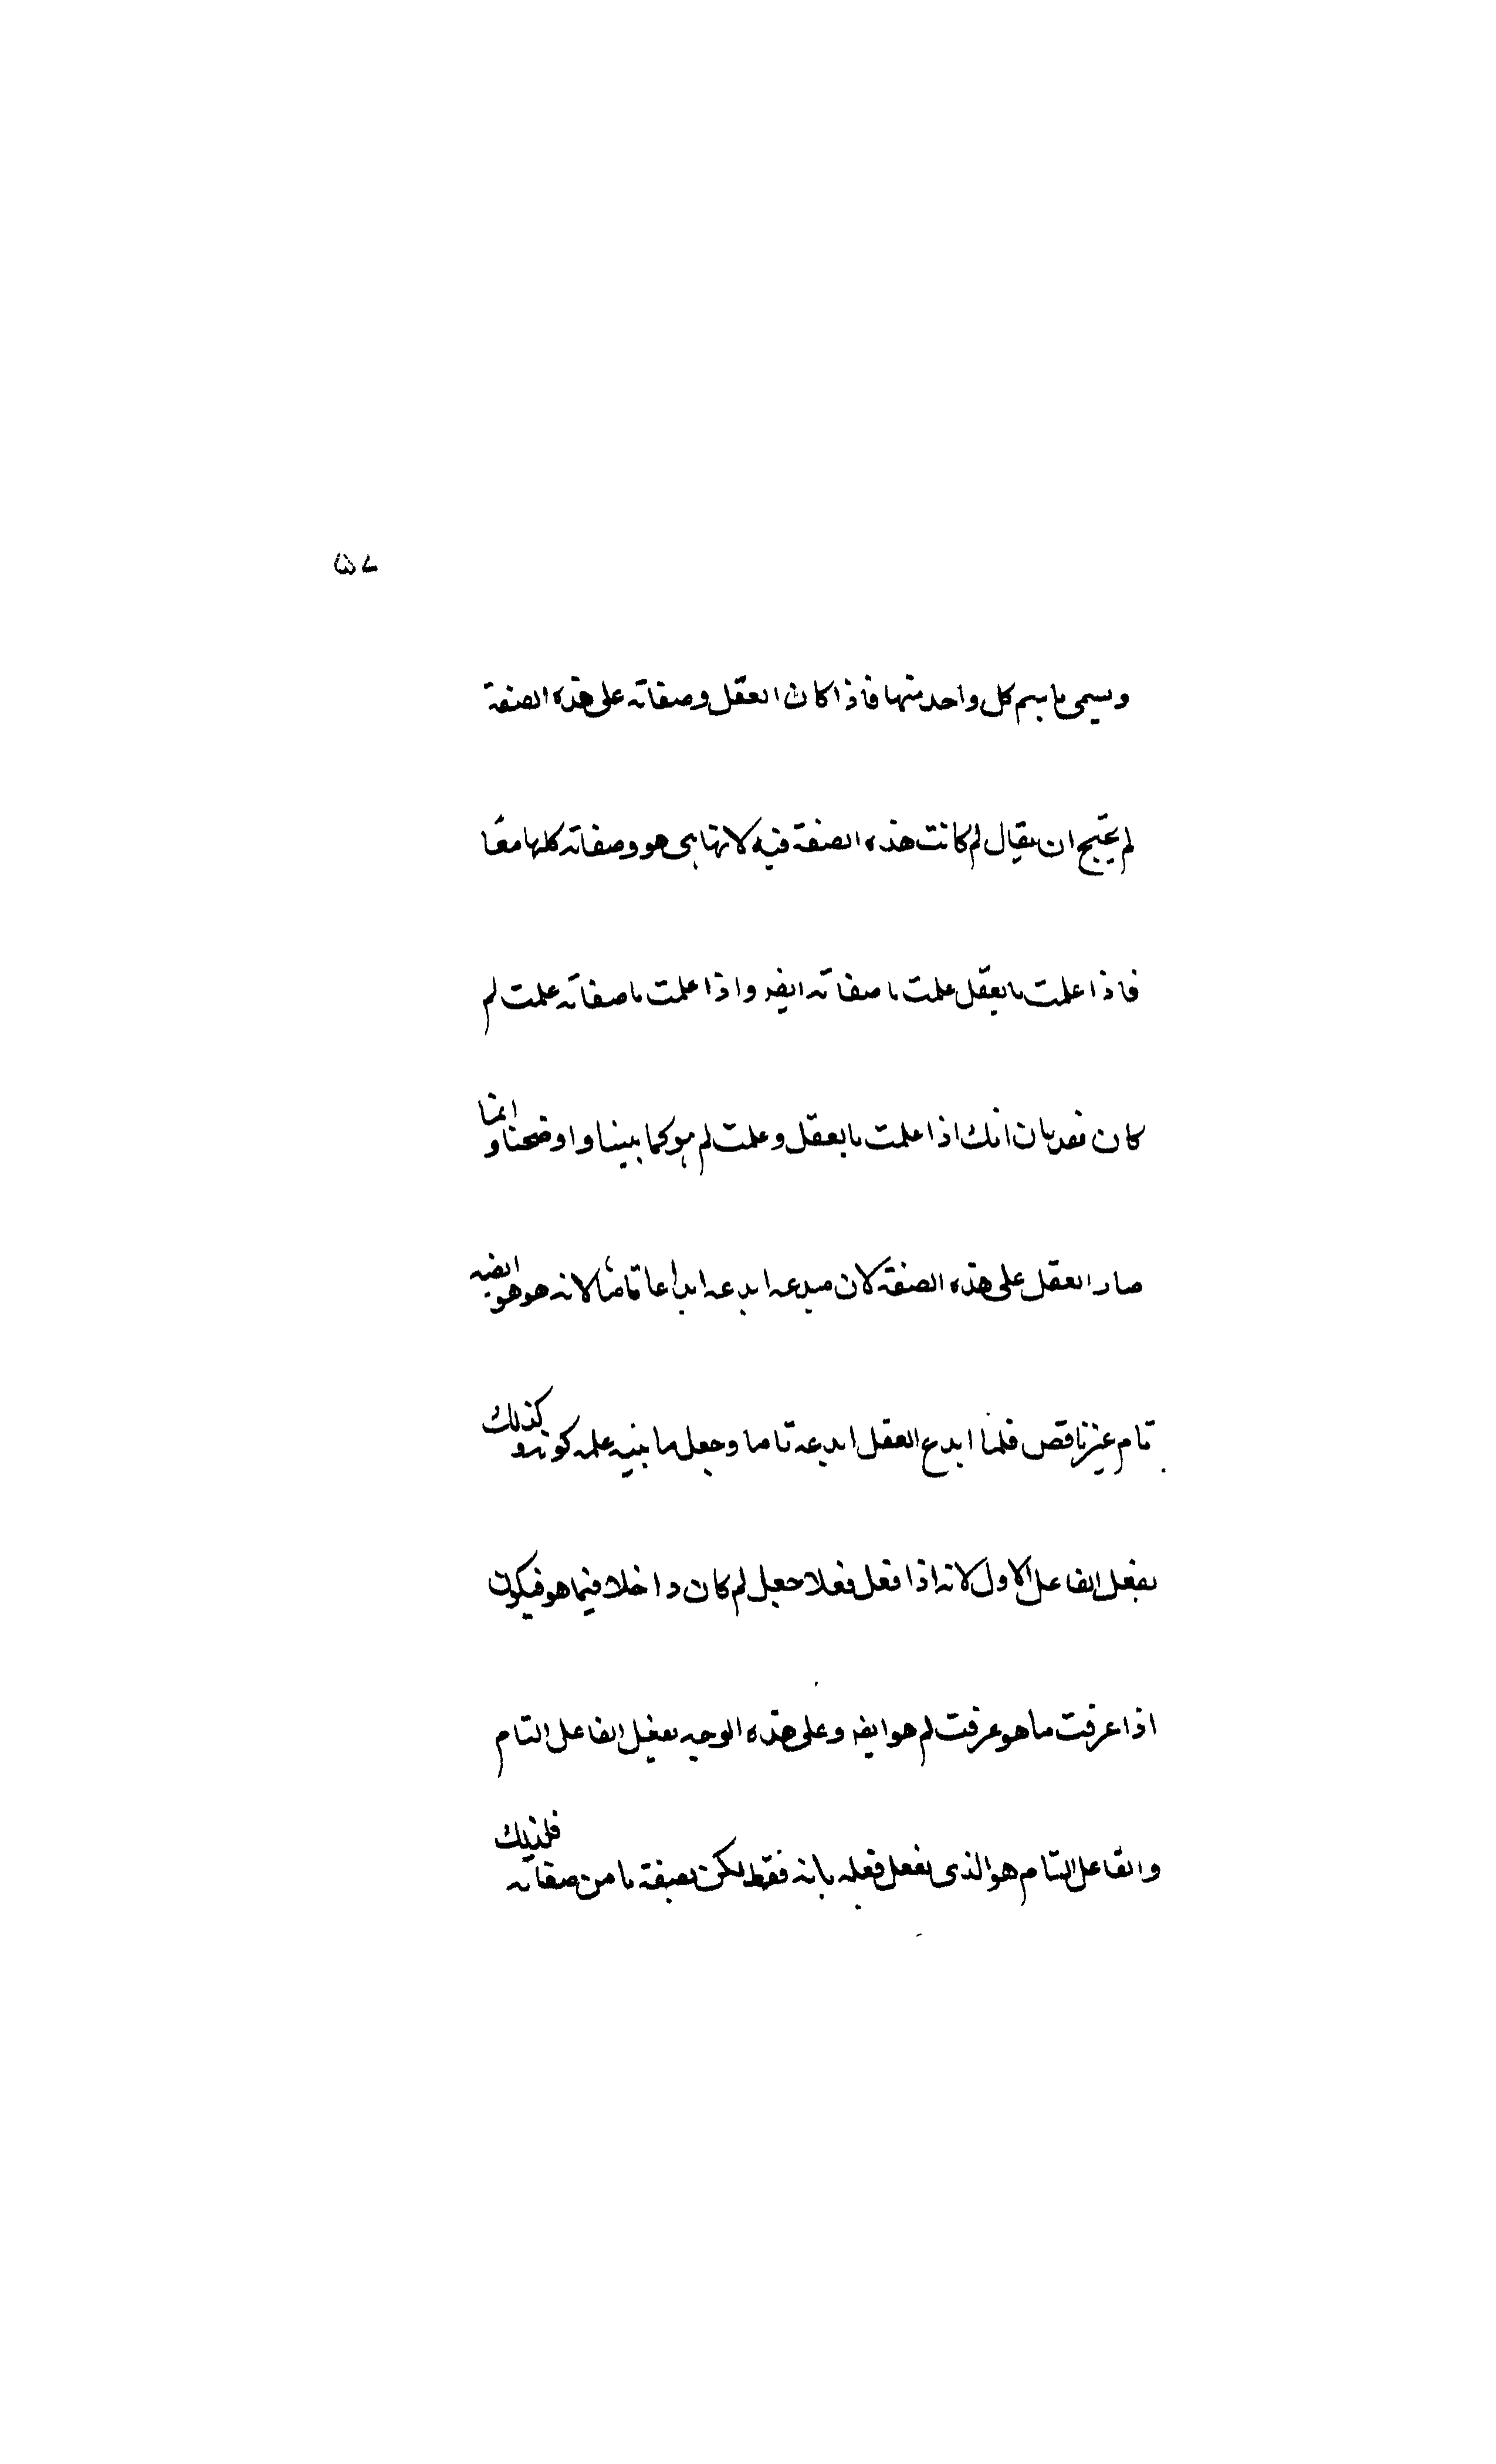 ۵۷
ويسمى باسم كل واحد منها فاذا كان العقل وصفاته على هذه الصفة
لم يحتج ان يقال لم كانت هذه الصفة فيه لانها هى هو وصفاته كلها معًا
فاذا علمت ما العقل علمت ما صفاته ايضه واذا علمت ما صفاته علمت لم
كان فقد بان انك اذا علمت ما العقل وعلمت لم هو كما بينا واوضحنا وانما
صار العقل على هذه الصفة لان مبدعه ابدعه ابداعا تاما لانه هو هو ايضه
تام غير ناقص فلما ابدع العقل ابدعه تاما وجعل مابنيه علمه كونه وكذلك
يفعل الفاعل الاول لانه اذا فعل فعلا جعل لم كان داخلا فيما هو فيكون
اذا عرفت ما هو عرفت لم هو ايضه وعلى هذه الوجه يفعل الفاعل التام
والفاعل التام هو الذى يفعل فعله بانه فقط لكن بصفة ما من صفاته